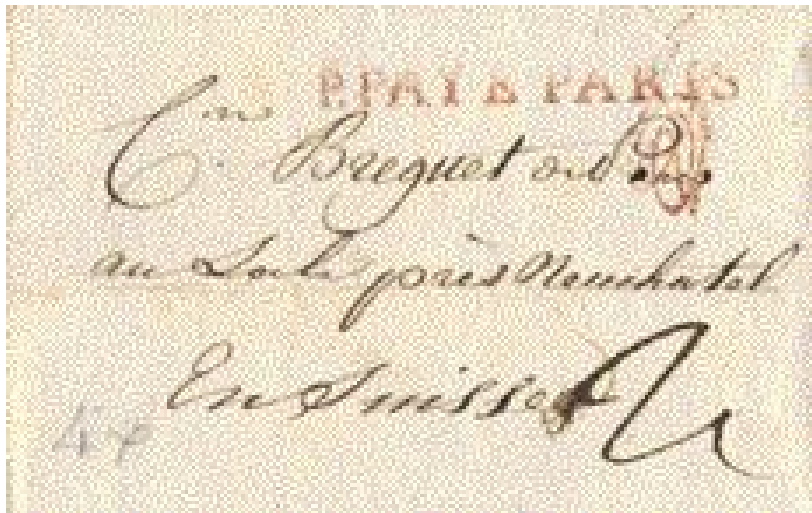 P.PAYÉ PARIS
Cen Breguet
au Locle près Neuchatel
En Suisse